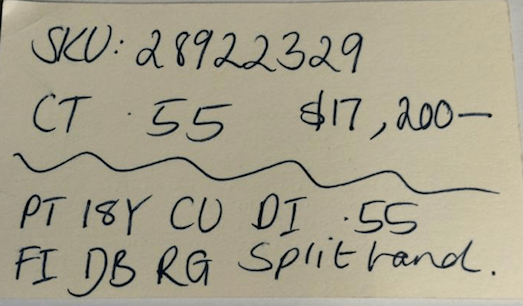 SKU: 28922329
CT .55 $17,200—
PT 18Y CU DI .55
FI DB RG Split band.